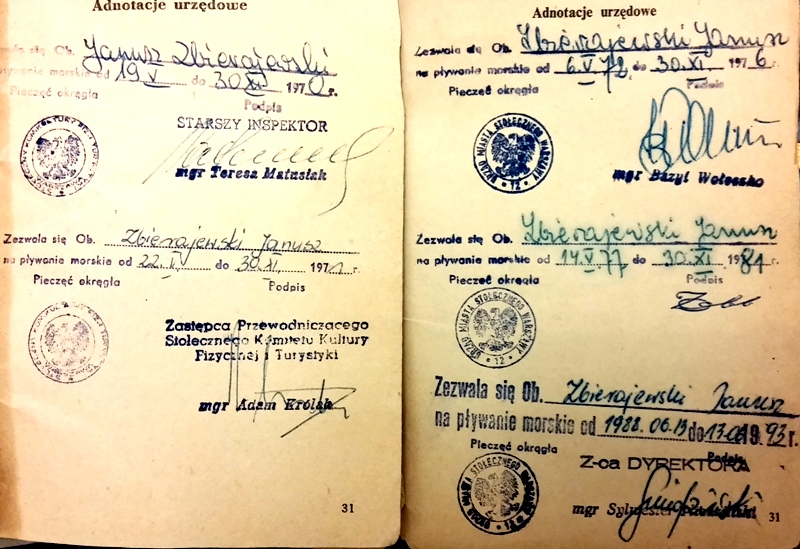 Adnotacje urzędowe
Zezwala się Ob. Janusz Zbierajewski
na pływanie morskie od 19 V do 30 XI 1970 r.
Pieczęć okrągła
Podpis
STARSZY INSPEKTOR
mgr Teresa Matusiak
Zezwala się Ob. Zbierajewski Janusz
na pływanie morskie od 22.V. do 30.XI. 1971 r.
Pieczęć okrągła
Podpis
Zastępca Przewodniczącego
Stołecznego Komitetu Kultury
Fizycznej i Turystyki
mgr Adam Królak
31
Adnotacje urzędowe
Zezwala się Ob. Zbierajewski Janusz
na pływanie morskie od 6.V.72 do 30.XI. 1976 r.
Pieczęć okrągła
Podpis
URZĄD MIASTA STOŁECZNEGO WARSZAWY
12
mgr Bazyl Wołoszko
Zezwala się Ob. Zbierajewski Janusz
na pływanie morskie od 14.V.77 do 30.XI. 1981 r.
Pieczęć okrągła
Podpis
URZĄD MIASTA STOŁECZNEGO WARSZAWY
12
Zezwala się Ob. Zbierajewski Janusz
na pływanie morskie od 1988.06.13 do 13.06.1993 r.
Pieczęć okrągła
Podpis
Z-ca DYREKTORA
mgr Sylwester
31